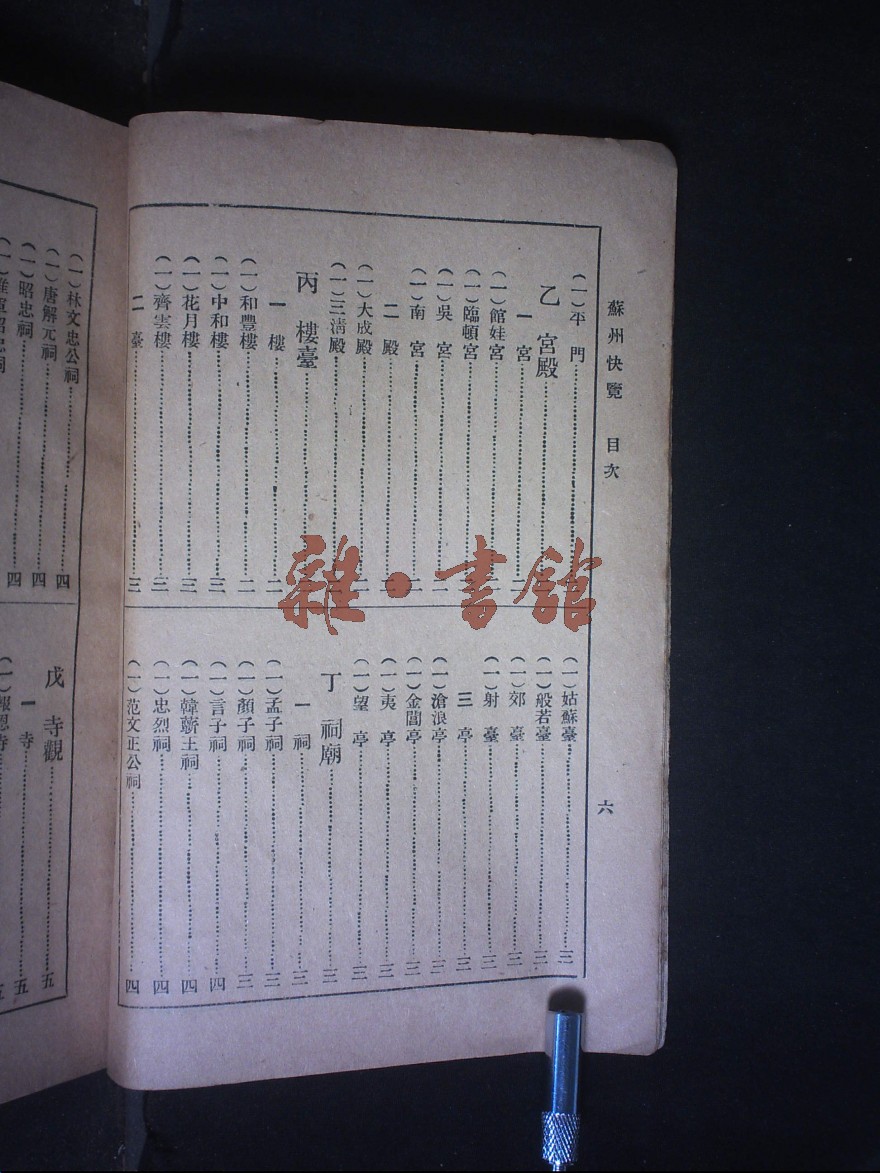 蘇州快覽 目次 六
(一)平門
乙 宮殿
一 宮
(一)館娃宮
(一)臨頓宮
(一)吳宮
(一)南宮
二 殿
(一)大成殿
(一)三清殿
丙 樓臺
一 樓……二
(一)和豐樓……二
(一)中和樓……三
(一)花月樓……三
(一)齊雲樓……三
二 臺……三
(一)姑蘇臺……三
(一)般若臺……三
(一)郊臺……三
(一)射臺……三
三 亭……三
(一)滄浪亭……三
(一)金閶亭……三
(一)夷亭……三
(一)望亭……三
丁 祠廟……三
一 祠……三
(一)孟子祠……三
(一)顏子祠……三
(一)言子祠……四
(一)韓蘄王祠……四
(一)忠烈祠……四
(一)范文正公祠……四
(一)林文忠公祠……四
(一)唐解元祠……四
(一)昭忠祠……四
戊 寺觀……五
一 寺……五
(一)報恩寺……五
雜·書館